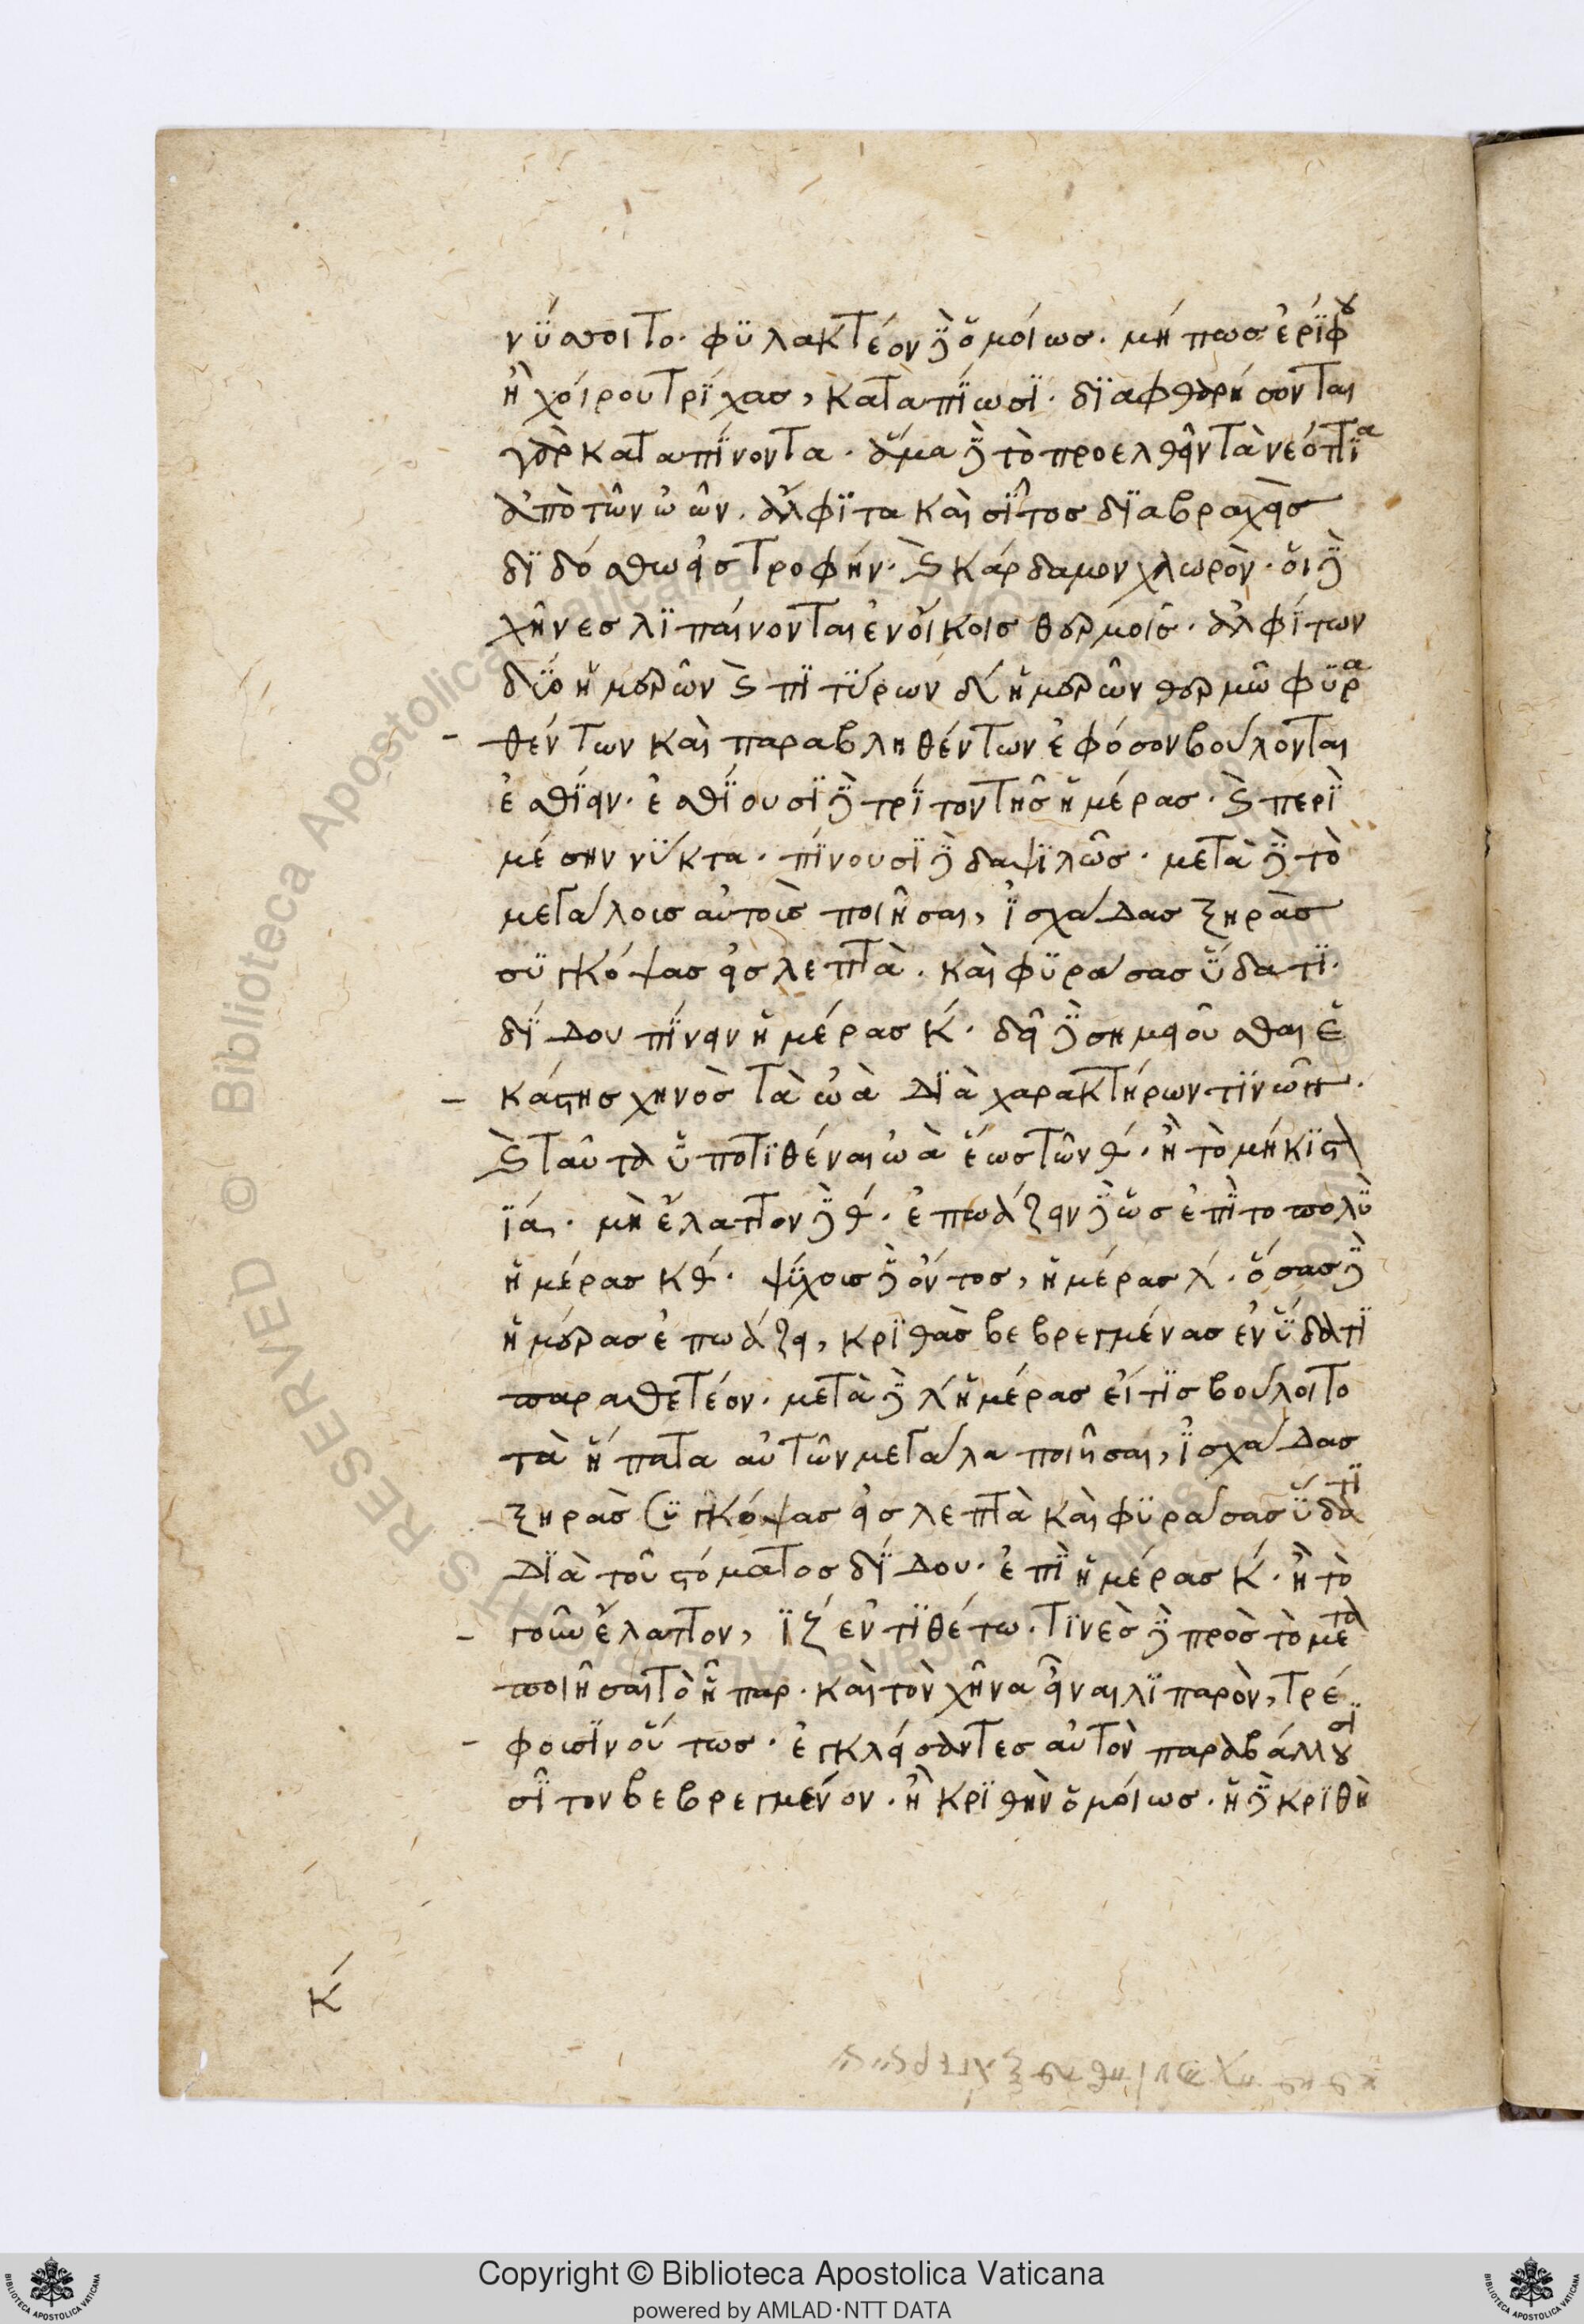 νύσοιτο. φυλακτέον δὲ ὁμοίως. μήπως ἐρίφου
ἢ χοίρου τρίχας, καταπίωσι. διαφθαρήσονται
γὰρ καταπίνοντα. ἅμα δὲ τὸ προελθεῖν τὰ νεόττια
ἀπὸ τῶν ὠῶν. ἄλφιτα καὶ σῖτος διαβραχεὶς
διδόσθω εἰς τροφήν. καὶ κάρδαμον χλωρὸν. οἱ δὲ
χῆνες λιπαίνονται ἐν οἴκοις θερμοῖς. ἀλφίτων
δύο ἡμερῶν καὶ πιτύρων δ́ ἡμερῶν θερμῶ φυρα
θέντων καὶ παραβληθέντων ἐφόσον βούλονται
ἐσθίειν. ἐσθίουσι δὲ τρίτον τῆς ἡμέρας. καὶ περὶ
μέσην νύκτα. πίνουσι δὲ δαψιλῶς. μετὰ δὲ τὸ
μεγάλοις αὐτοῖς ποιῆσαι, ἰσχάδας ξηρὰς
συγκόψας εἰς λεπτὰ. καὶ φυράσας ὕδατι.
δίδου πίνειν ἡμέρας κ́. δεῖ δὲ σημειοῦσθαι ἑ
κάστης χηνὸς τὰ ὠὰ διὰ χαρακτήρων τινῶν.
καὶ ταῦτα ὑποτιθέναι ὠὰ ἕως τῶν θ́. ἢ τὸ μήκιστα
ιά. μὴ ἔλαττον δὲ θ́. ἐπωάζειν δὲ ὡς ἐπὶ το πολὺ
ἡμέρας κθ́. ψύχους δὲ ὄντος, ἡμέρας λ́. ὅσας δὲ
ἡμέρας ἐπωάζει, κριθὰς βεβρεγμένας ἐν ὕδατι
παραθετέον. μετὰ δὲ λ́ ἡμέρας εἴ τις βούλοιτο
τὰ ἥπατα αὐτῶν μεγάλα ποιῆσαι, ἰσχάδας
ξηρὰς συγκόψας εἰς λεπτὰ καὶ φυράσας ὕδατι
διὰ τοῦ στόματος δίδου. ἐπὶ ἡμέρας κ́. ἢ τὸ
γοῦν ἔλαττον, ιζ́ ἐντιθέτω. τινὲς δὲ πρὸς τὸ μέγα
ποιῆσαι τὸ ἧπαρ. καὶ τὸν χῆνα εἶναι λιπαρὸν, τρέ
φουσιν οὕτως. ἐγκλείσαντες αὐτὸν παραβάλλουσι
σῖτον βεβρεγμένον. ἢ κριθὴν ὁμοίως. ἡ δὲ κριθὴ
κ́
Copyright © Biblioteca Apostolica Vaticana
powered by AMLAD·NTT DATA